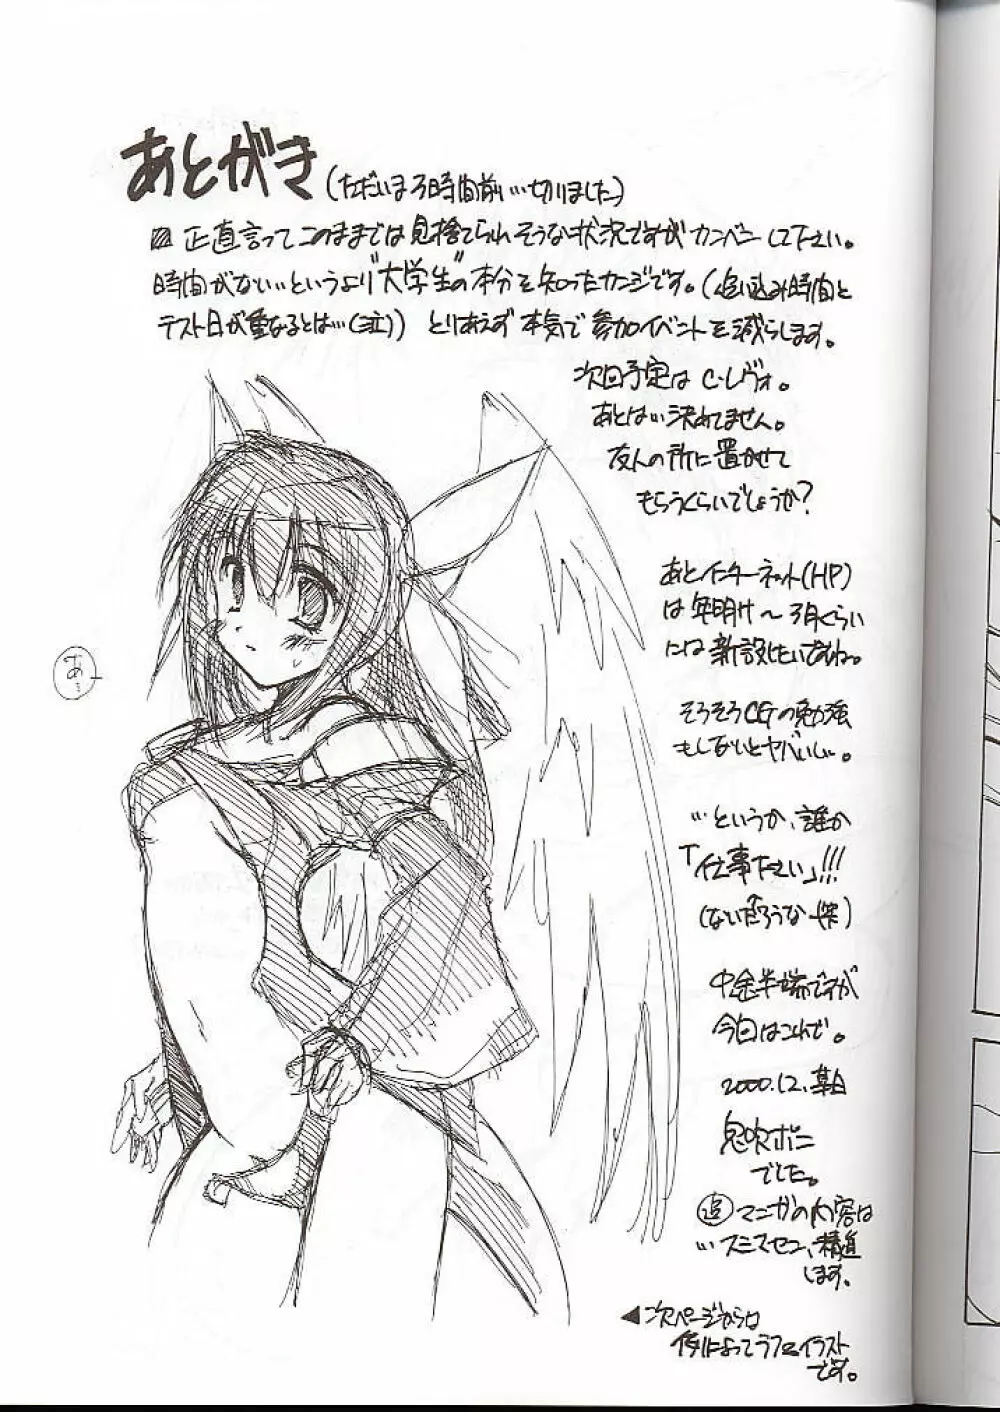 あとがき(ただいま3時間前…切りました)
正直言ってこのままでは見捨てられそうな状況ですがカンベンして下さい。
時間がない…というより"大学生"の本分を知ったカンジです。(追い込み時間と
テスト日が重なるとは…(泣))とりあえず本気で参加イベントを減らします。
次回予定はC・レヴォ。
あとは…決めてません。
友人の所に置かせて
もらうくらいでしょうか?
あとインターネット(HP)
は年明け〜3月くらい
には新設したいですね。
そろそろCGの勉強
もしないとヤバいし。
…というか、誰か
「仕事下さい」!!!
(ないだろうな)
中途半端ですが
今回はこれで。
2000.12.某日
息吹ポン
でした。
追 マンガの内容は
…スミマセン、精進
します。
◀次ページからは
例によってラフイラスト
です。
あ…